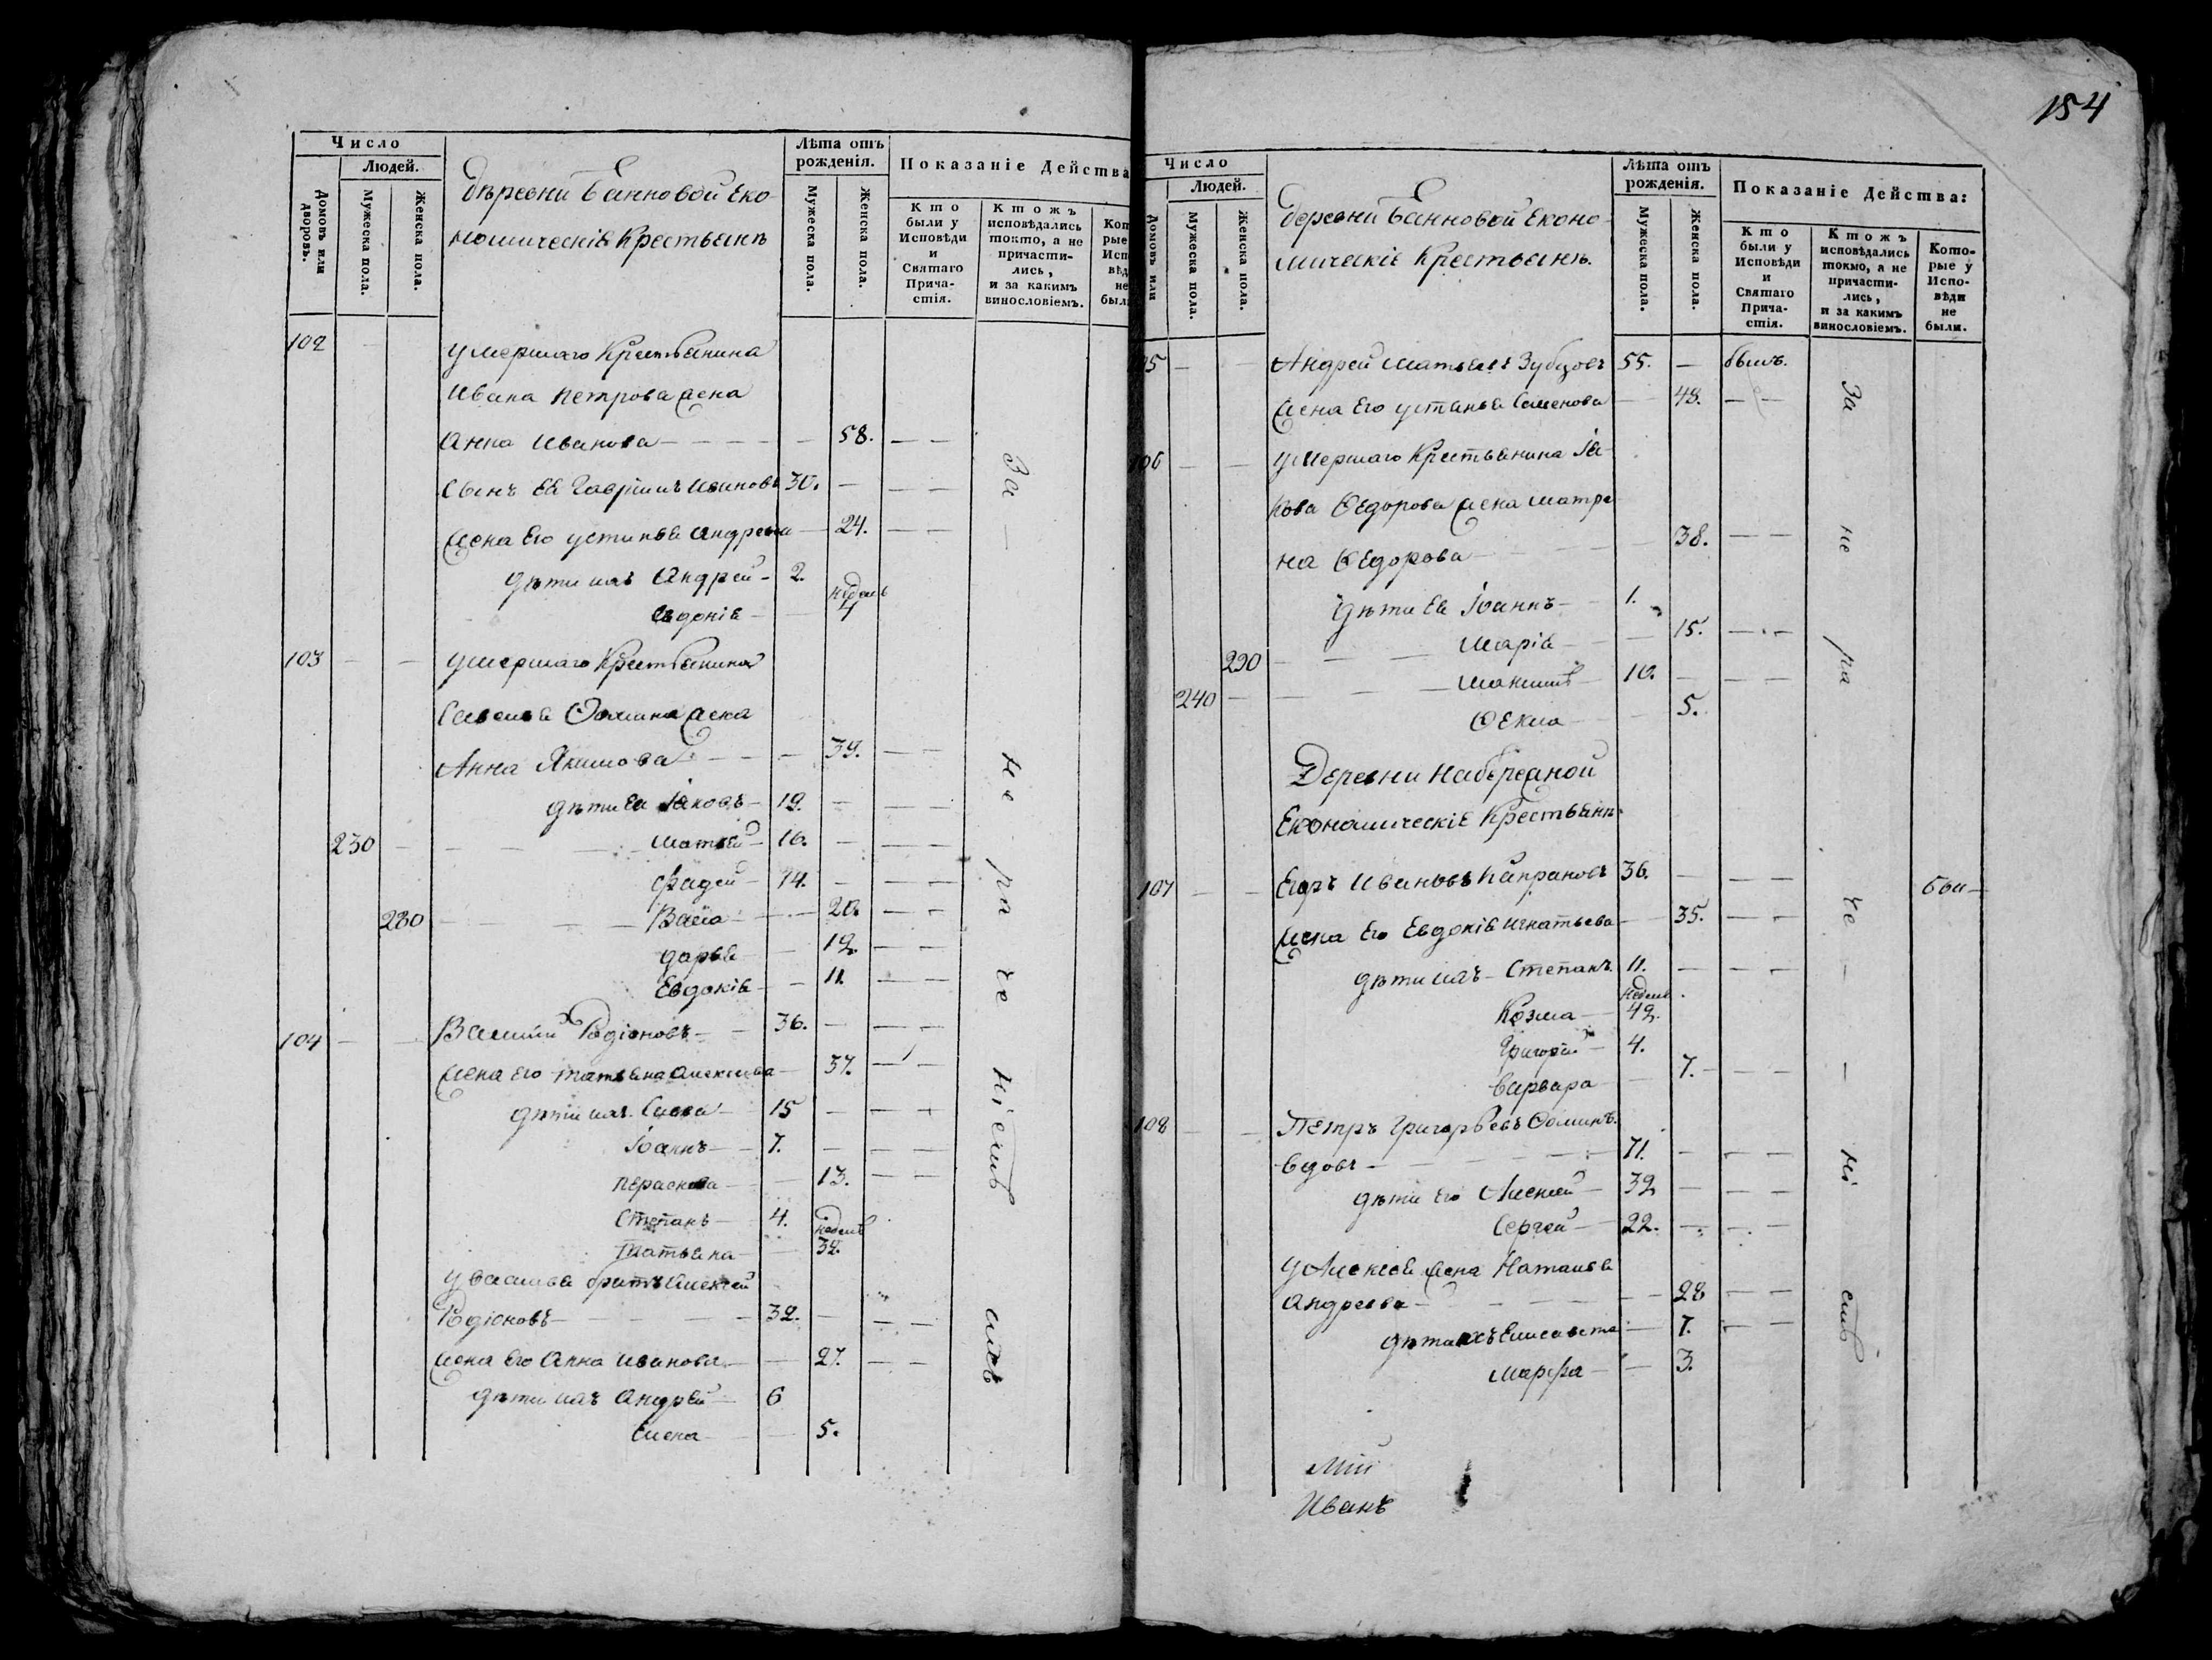 Число
Людей.
Домовъ или дворовъ.
Мужеска пола.
Женска пола.
Деревни Банновой Еко-
номическіе Крестьянѣ
Лѣта отъ
рожденія.
Мужеска пола.
Женска пола.
Показаніе Действа
Кто
были у
Исповѣди
и
Святаго
Прича-
стія.
Ктожъ
исповѣдались
токмо, а не
причасти-
лись,
и за какимъ
винословіемъ.
102 умершаго Крестьянина
Ивана Петрова жена
Анна Иванова 58.
Сынъ ея Гавріилъ Ивановъ 30.
жена его устинья андреева 24.
дѣти ихъ Андрей 2.
недель
Евдокія 4
103 умершаго Крестьянина
Савелья Фомина жена
Анна Якимова 39.
дѣти ея Іаковъ 19.
230 матвей 16.
фадей 14.
280 Васса 20.
дарья 12.
Евдокія 11.
104 Василій Родіоновъ 36.
жена его татьяна алексеева 37.
дѣти ихъ Савва 15
Іоаннъ 7.
параскева 13.
Степанъ 4.
недель
татьяна 32.
у василья братъ алексей
Родіоновъ 32.
жена его Анна Иванова 27.
дѣти ихъ Андрей 6
Елена 5.
За не ра че ні емъ
154
Число
Людей.
Домовъ или
Мужеска пола.
Женска пола.
деревни Банновой Еконо-
мическіе Крестьянѣ.
Лѣта отъ
рожденія.
Мужеска пола.
Женска пола.
Показаніе Действа:
Кто
были у
Исповѣди
и
Святаго
Прича-
стія.
Ктожъ
исповѣдались
токмо, а не
причасти-
лись,
и за какимъ
винословіемъ.
Кото-
рые у
Испо-
вѣди
не
были.
105 Андрей Матвеевъ Зубцовъ 55. былъ.
жена его устинья Семенова 48.
106 умершаго Крестьянина Іа-
кова Федорова жена матре-
на Федорова 38.
дѣти ея Іоаннъ 1.
290 Марія 15.
240 Максимъ 10.
Фекла 5.
Деревни Набережной
Економическіе Крестьянѣ
107 Егоръ Ивановъ Капрановъ 36.
жена его Евдокія игнатьева 35.
дѣти ихъ Степанъ 11.
недель
Козма 42.
Григорій 4.
варвара 7.
108 Петръ Григорьевъ Фоминъ.
вдовъ 71.
дѣти его Алексей 32
Сергей 22.
у Алексея жена Наталья
андреева 28
дѣти ихъ Елисавета 7.
марфа 3.
За не ра че ні емъ
Иванъ